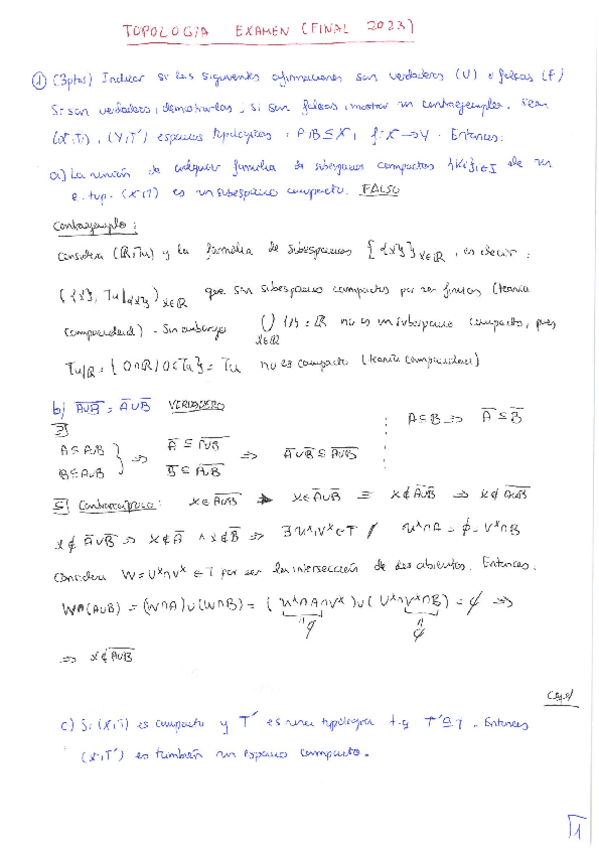 TOPOLOGÍA EXAMEN (FINAL 2023)
① (3ptos) Indicar si las siguientes afirmaciones son verdaderas (V) o falsas (F)
Si son verdaderas, demostrarlas, si son falsas, mostrar un contraejemplo. Sean
(X,T), (Y,T') espacios topológicos, A,B ⊆ X, f: X → Y. Entonces:
a) La unión de cualquier familia de subespacios compactos {Ki}i∈I de un
e. top. (X,T) es un subespacio compacto. FALSO
Contraejemplo:
Considera (ℝ,Tu) y la familia de subespacios { {x} }x∈ℝ, es decir:
({x}, Tu|{x})x∈ℝ que son subespacios compactos por ser finitos (teoría
compacidad). Sin embargo ⋃x∈ℝ {x} = ℝ no es un subespacio compacto, pues
Tu|ℝ = {O∩ℝ / O∈Tu} = Tu no es compacto (teoría compacidad)
b) A̅∪̅B̅ = A̅∪B̅ VERDADERO
⊇]
A⊆A∪B
B⊆A∪B } ⇒ A̅ ⊆ A̅∪̅B̅
B̅ ⊆ A̅∪̅B̅ ⇒ A̅∪B̅ ⊆ A̅∪̅B̅
A⊆B ⇒ A̅ ⊆ B̅
⊆] Contrarrecíproco: x∈A̅∪̅B̅ ⇒ x∈A̅∪B̅ ≡ x∉A̅∪B̅ ⇒ x∉A̅∪̅B̅
x∉A̅∪B̅ ⇒ x∉A̅ ∧ x∉B̅ ⇒ ∃Uˣ,Vˣ∈T / Uˣ∩A = ∅ = Vˣ∩B
Considera W = Uˣ∩Vˣ ∈ T por ser la intersección de dos abiertos. Entonces:
W∩(A∪B) = (W∩A)∪(W∩B) = (Uˣ∩A∩Vˣ)∪(Uˣ∩Vˣ∩B) = ∅ ⇒
∅ ∅
⇒ x∉A̅∪̅B̅
c.q.d
c) Si (X,T) es compacto y T' es una topología t.q T'⊆T. Entonces
(X,T') es también un espacio compacto.
1